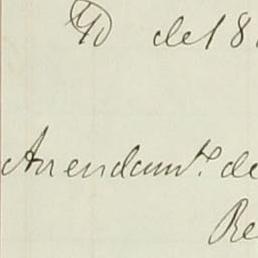 de 18
Arrendamto. de
Re